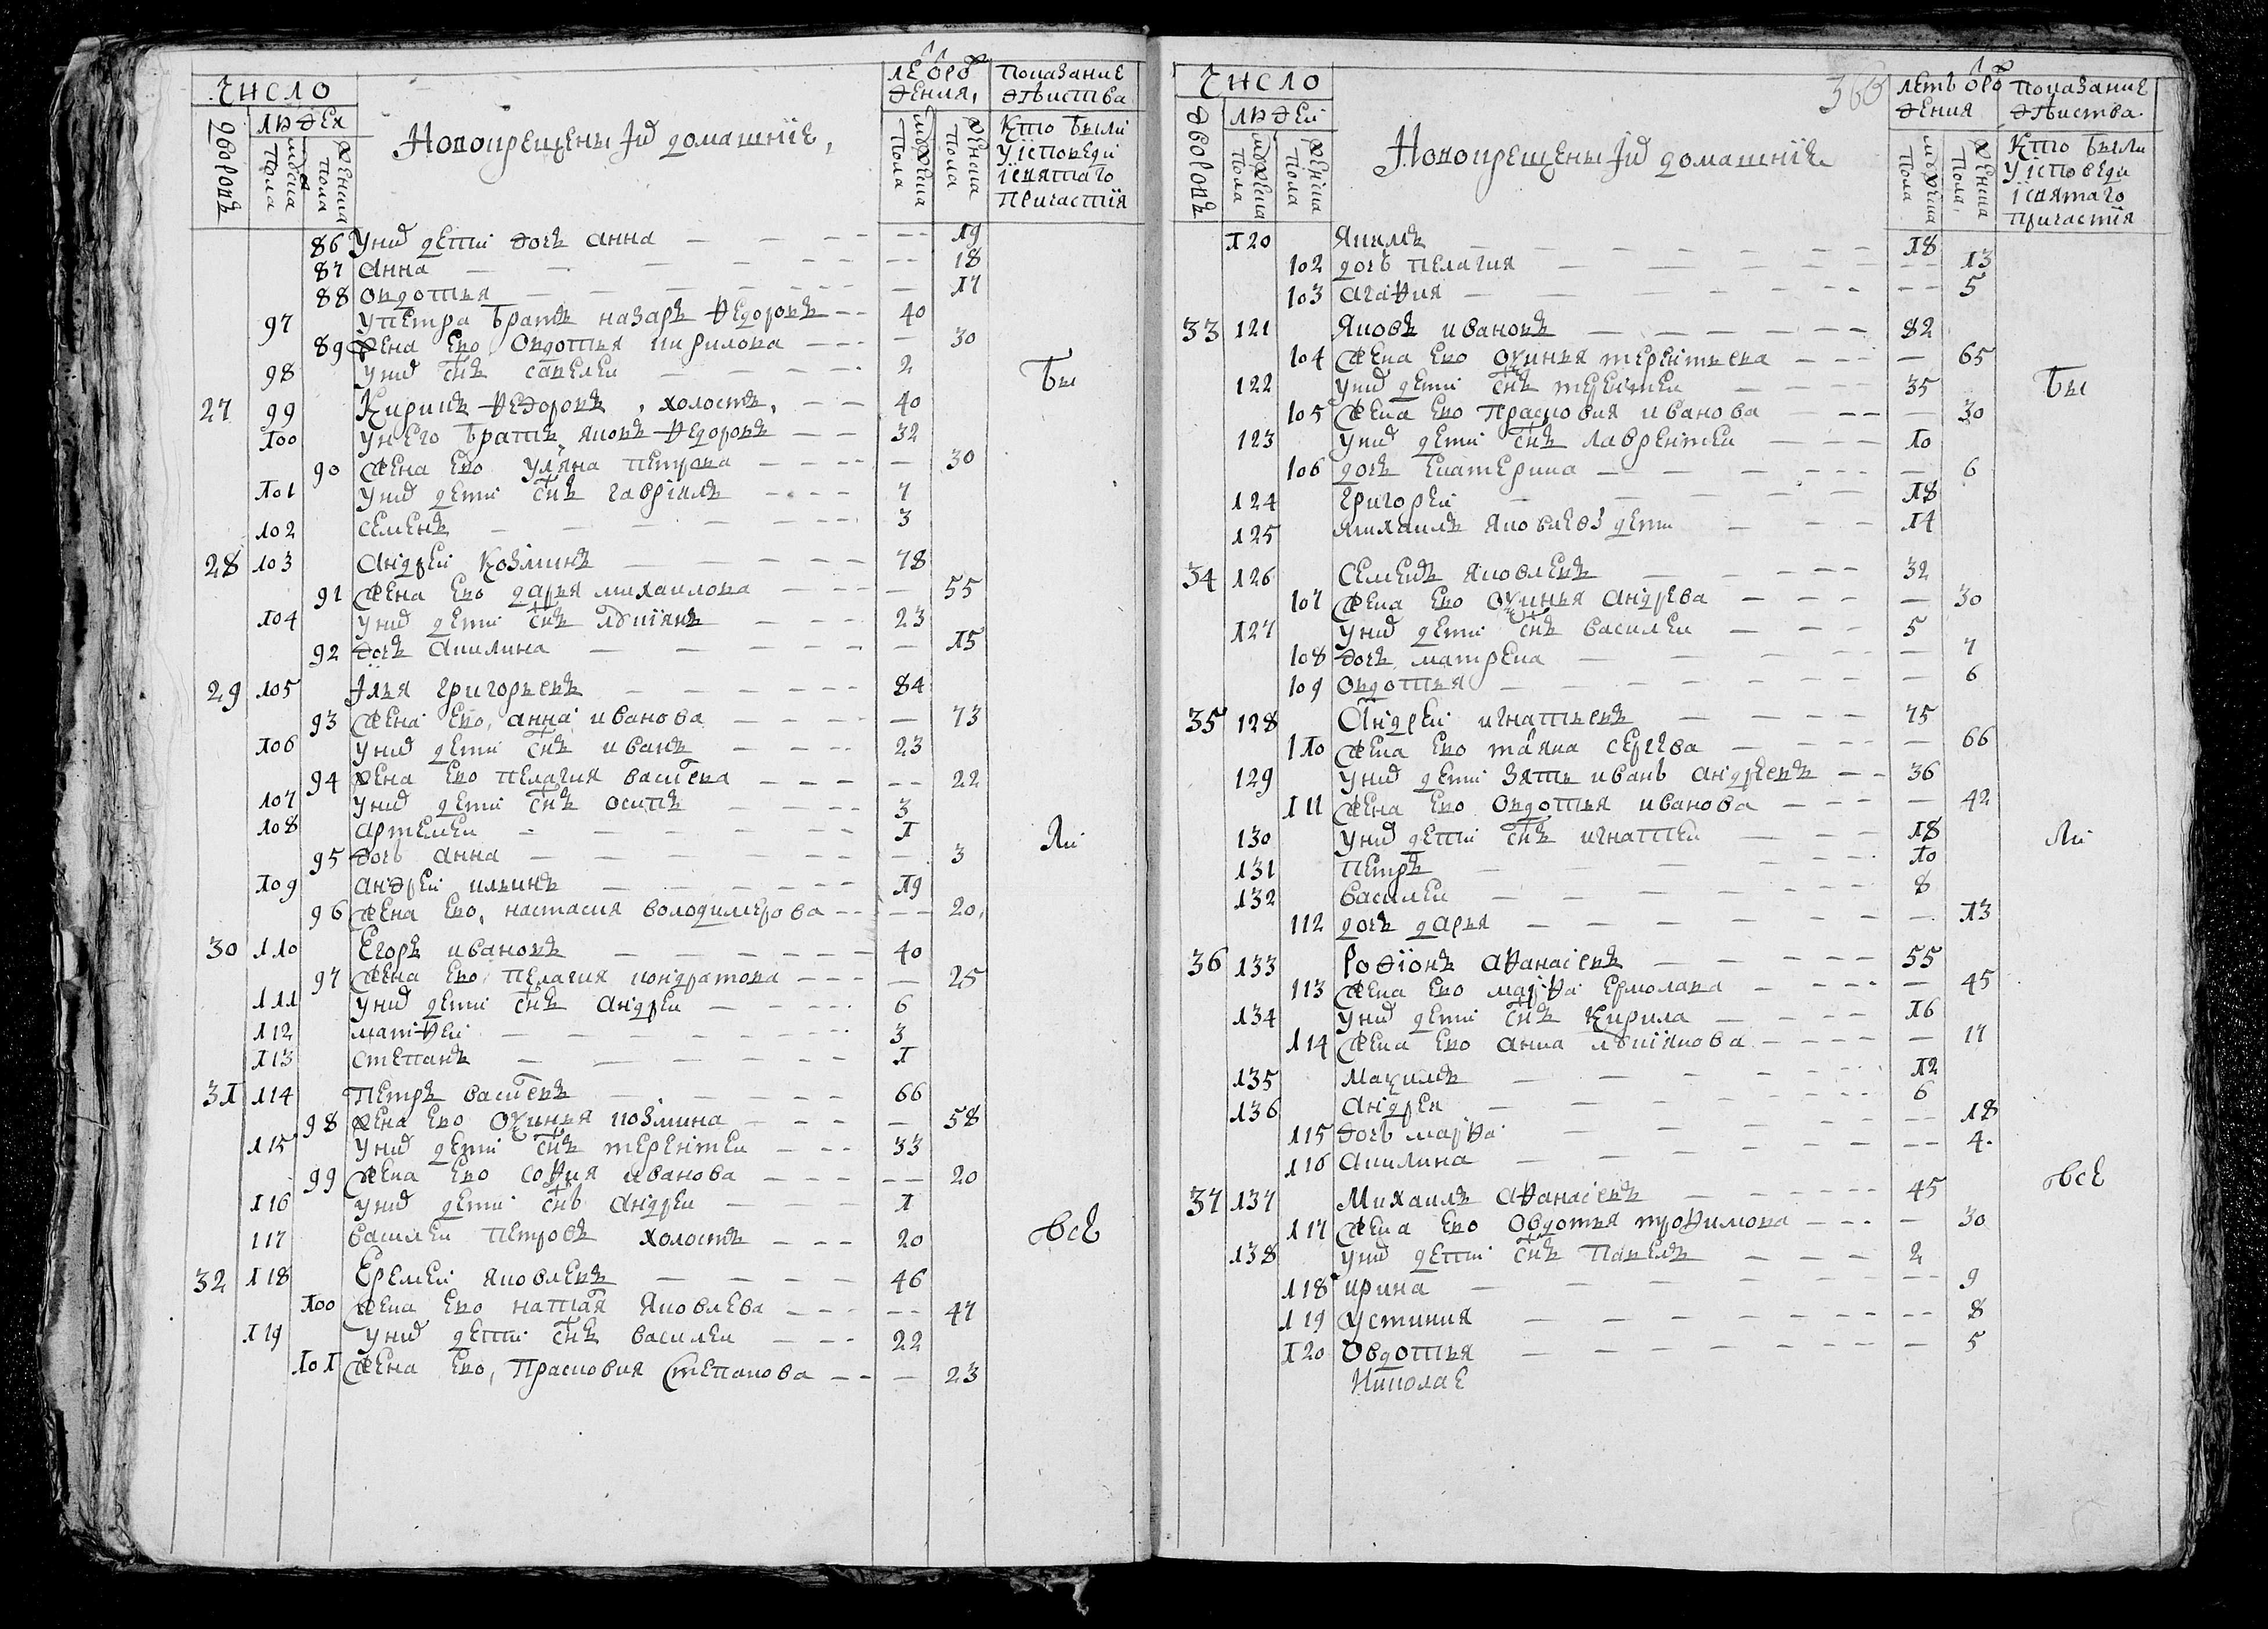 число
людей
дворовъ
мужеска пола
женска пола
Новокрещены Iих домашнїе,
лѣт от рождения,
мужеска пола
женска пола
показание действа
Кто были у iсповеди iсвятаго причастїя
86 у них дети дочь анна 19
87 анна 18
88 овдотья 17
97 у петра братъ назаръ ѳедоровъ 40
89 жена ево овдотья кирилова 30
98 у них снъ савелей 2
27 99 Кирилъ ѳедоровъ, холостъ, 40
100 у него братъ яковъ ѳедоровъ 32
90 жена ево ульяна петрова 30
101 у них дети снъ гаврiилъ 7
102 семенъ 3
28 103 андреи козминъ 78
91 жена ево дарья михаилова 55
104 у них дети снъ лукïянъ 23
92 дочь акилина 15
29 105 Iлья григорьевъ 84
93 жена ево, анна иванова 73
106 у них дети снъ иванъ 23
94 жена ево пелагия васiлева 22
107 у них дети снъ осипъ 3
108 артемеи 1
95 дочь анна 3
109 андреи ильинъ 19
96 жена ево, настасия володимерова 20
30 110 Егоръ ивановъ 40
97 жена ево пелагия кондратова 25
111 у них дети снъ андреи 6
112 матѳеи 3
113 степанъ 1
31 114 Петръ васiлевъ 66
98 жена ево оѯинья козмина 58
115 у них дети снъ терентеи 33
99 жена ево соѳия иванова 20
116 у них дети снъ андреи 1
117 василеи петровъ холостъ 20
32 118 Еремеи яковлевъ 46
100 жена ево наталя яковлева 47
119 у них дети снъ василеи 22
101 жена ево, прасковия степанова 23
Бы
ли
всѣ
число
людеи
дворовъ
мужеска пола
женска пола
Новокрещены Iих домашнїе
360
летъ от рождения
мужеска пола
женска пола
показание действа
Кто были у iсповеди ïсвятаго причастïя
120 Якимъ 18
102 дочь пелагия 13
103 агаѳия 5
33 121 Яковъ ивановъ 82
104 жена ево оѯинья терентьева 65
122 у них дети снъ терентеи 35
105 жена ево прасковия иванова 30
123 у них дети снъ лаврентеи 10
106 дочь екатерина 6
124 григореи 18
125 михаилъ яковлевы дети 14
34 126 Семенъ яковлевъ 32
107 жена ево оѯинья андрева 30
127 у них дети снъ василеи 5
108 дочь матрена 7
109 овдотья 6
35 128 Андреи игнатьевъ 75
110 жена ево татяна сергева 66
129 у них дети зять иванъ андреевъ 36
111 жена ево овдотья иванова 42
130 у них дети снъ игнатеи 18
131 петръ 10
132 василеи 8
112 дочь дарья 13
36 133 Родїонъ аѳанасiевъ 55
113 жена ево марѳа ермолава 45
134 у них дети снъ кирила 16
114 жена ево анна лукїянова 17
135 Макимъ 12
136 андреи 6
115 дочь марѳа 18
116 акилина 4
37 137 Михаилъ аѳанасiевъ 45
117 жена ево овдотья троѳимова 30
138 у них дети снъ павелъ 2
118 ирина 9
119 устиния 8
120 овдотья 5
Николае
Бы
ли
всѣ